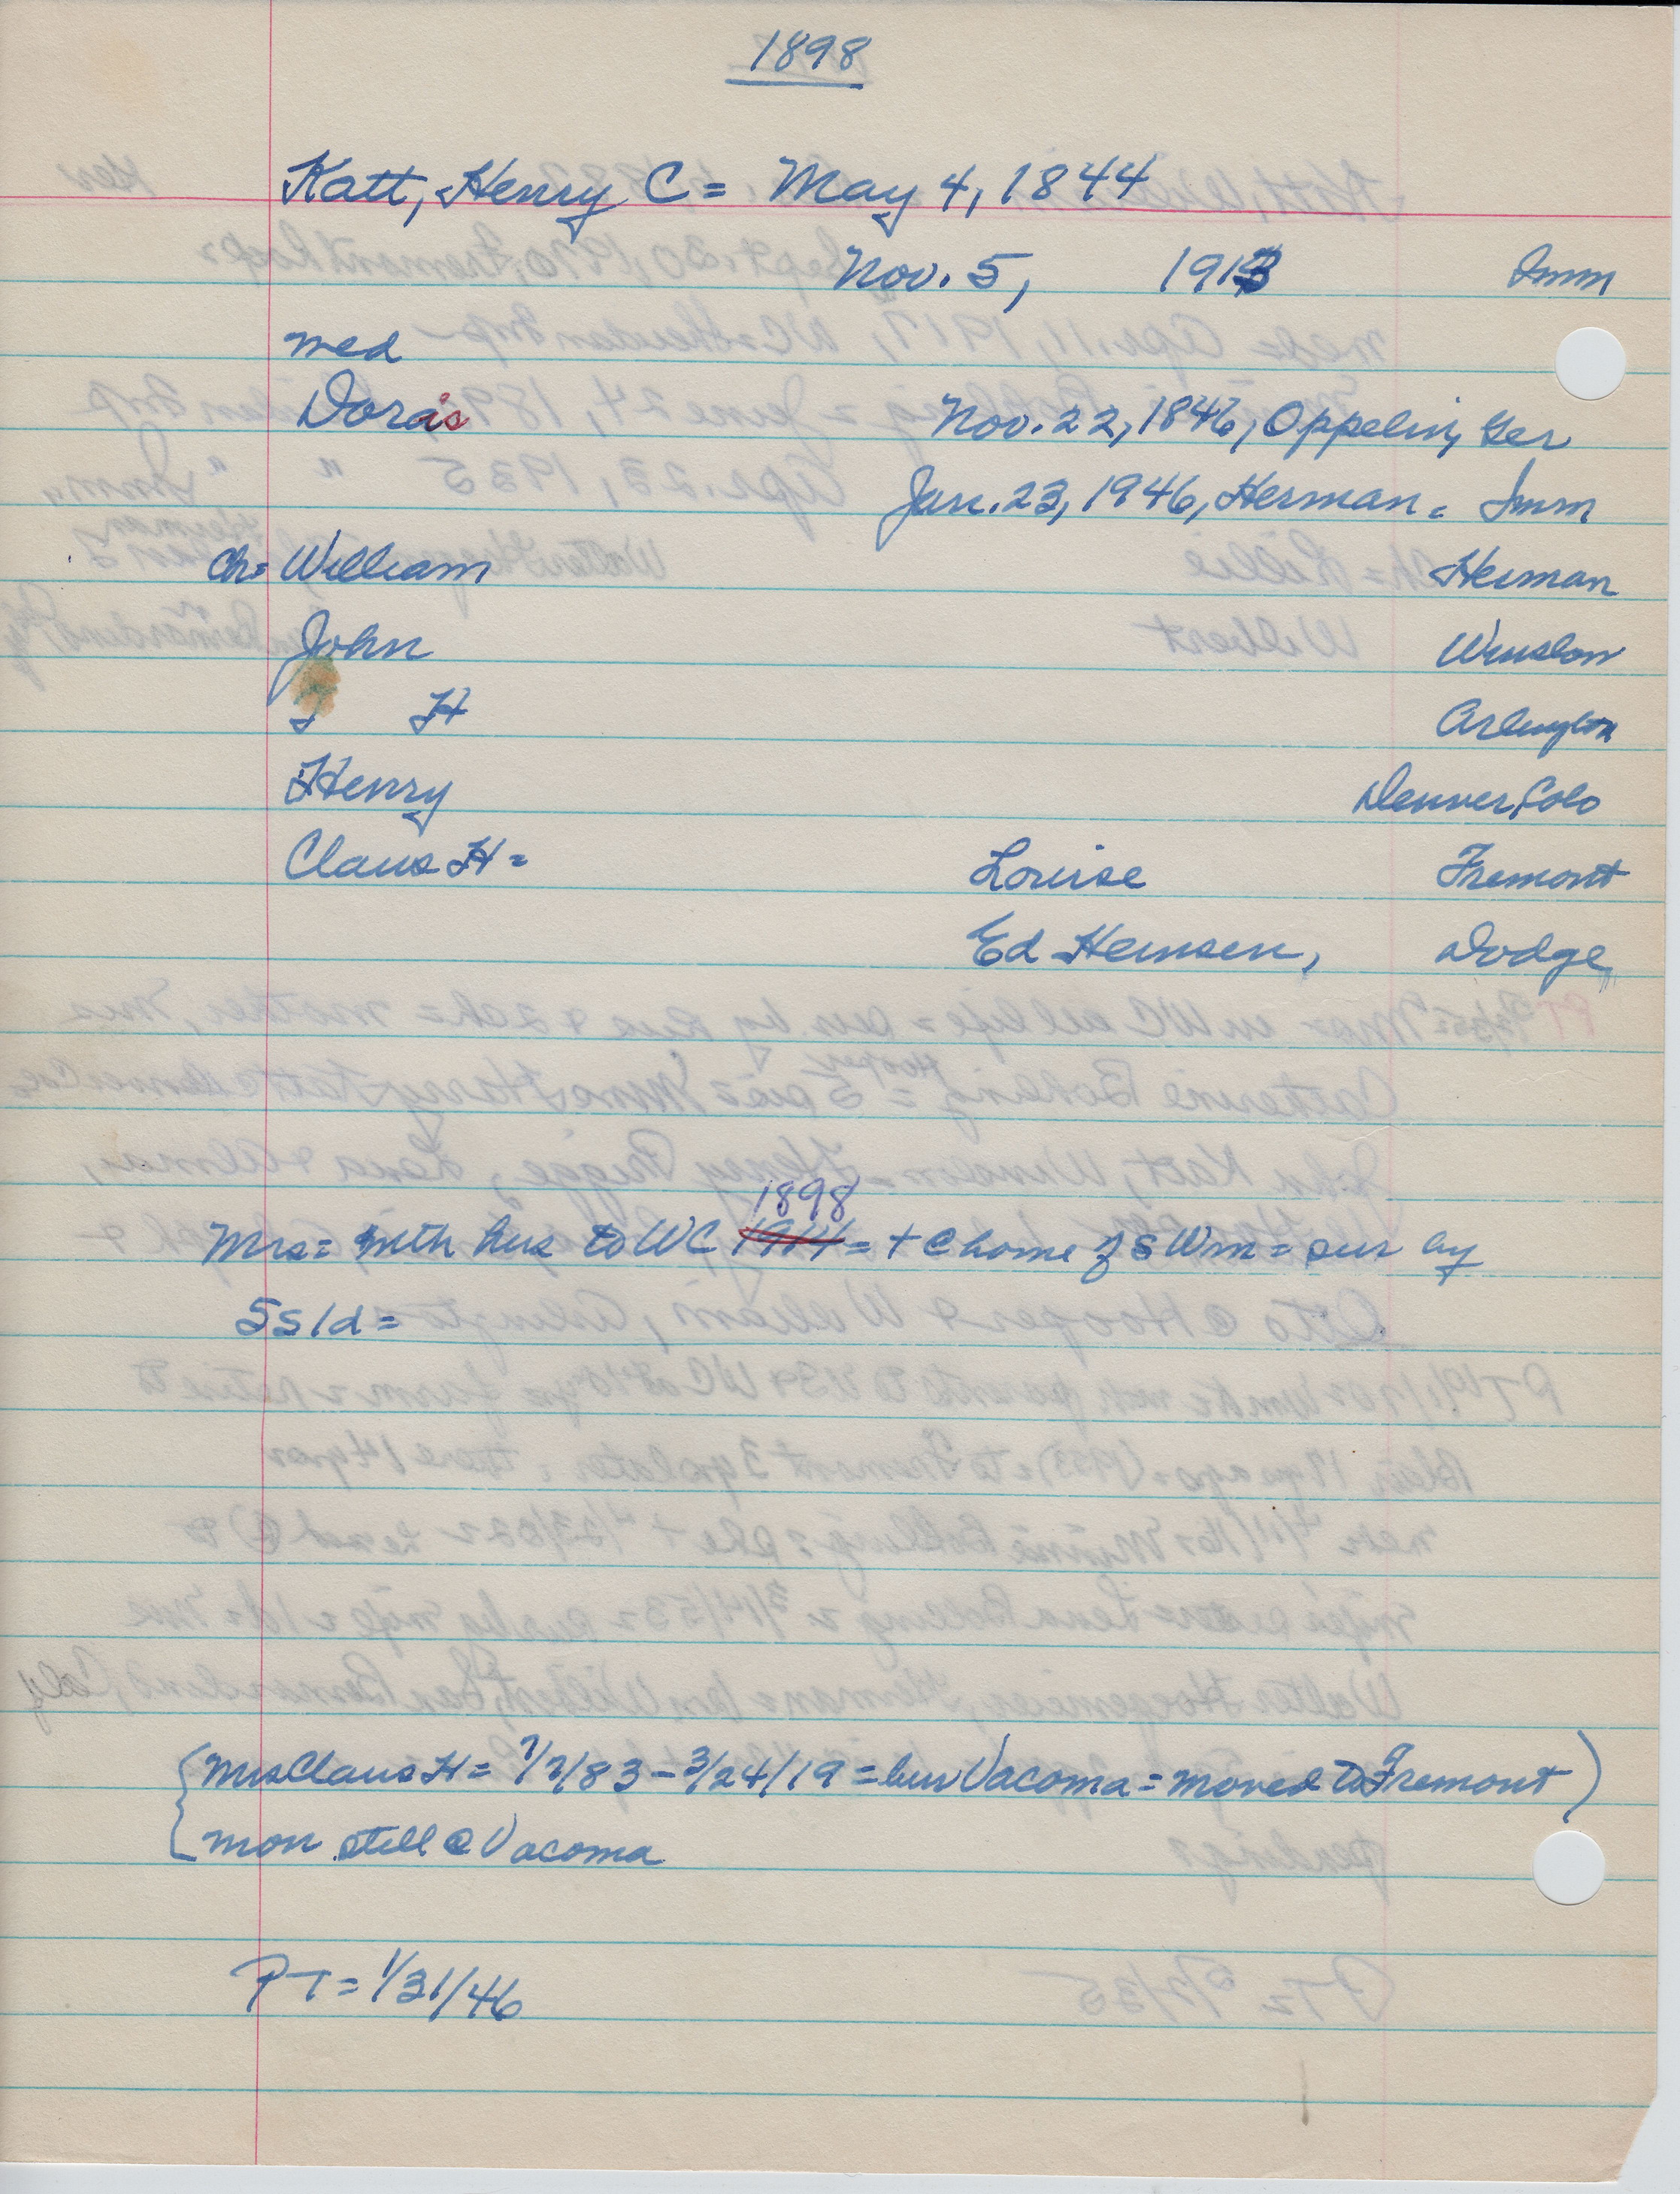 1898
Katt, Henry C = May 4, 1844
Nov. 5, 1913 Imm
med
Doras Nov. 22, 1846, Oppelin, Ger
Jan. 23, 1946, Herman = Imm
Ch = William Herman
John Winslow
J H Arlington
Henry Denver, Colo
Claus H = Louise Fremont
Ed Hemsen, Dodge
1898
Mrs = with hus to WC 1914 = + @ home of s Wm = sur by
5s 1d =
Mrs Claus H = 7/7/83 - 3/24/19 = bur Vacoma = moved to Fremont
mon still @ Vacoma
PT = 1/31/46